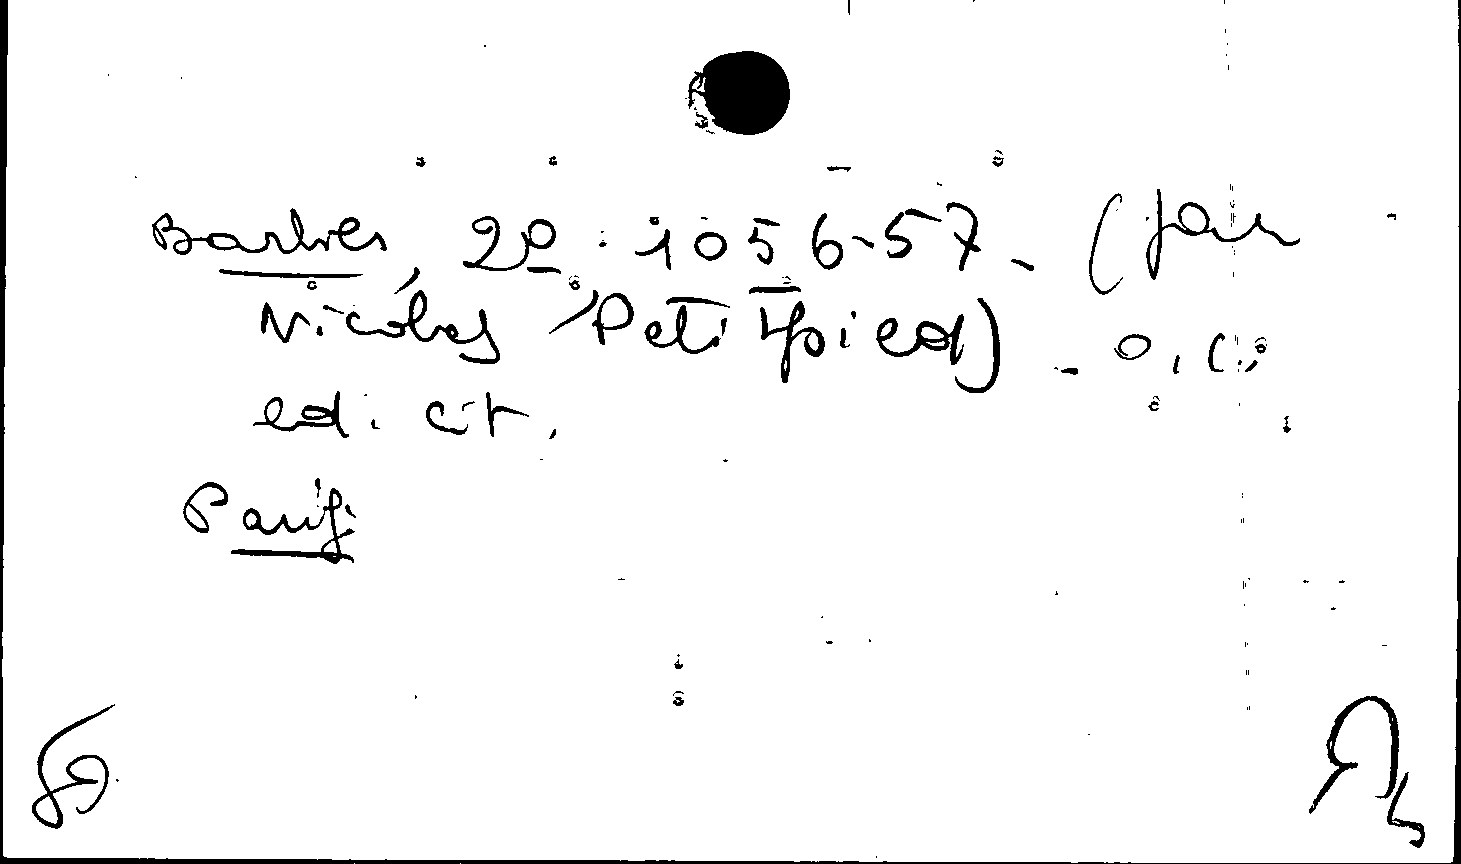 Barbier, 2º : 1056-57 - (par
Nicolas Petitpied) - o. c.,
ed. cit.
Paris